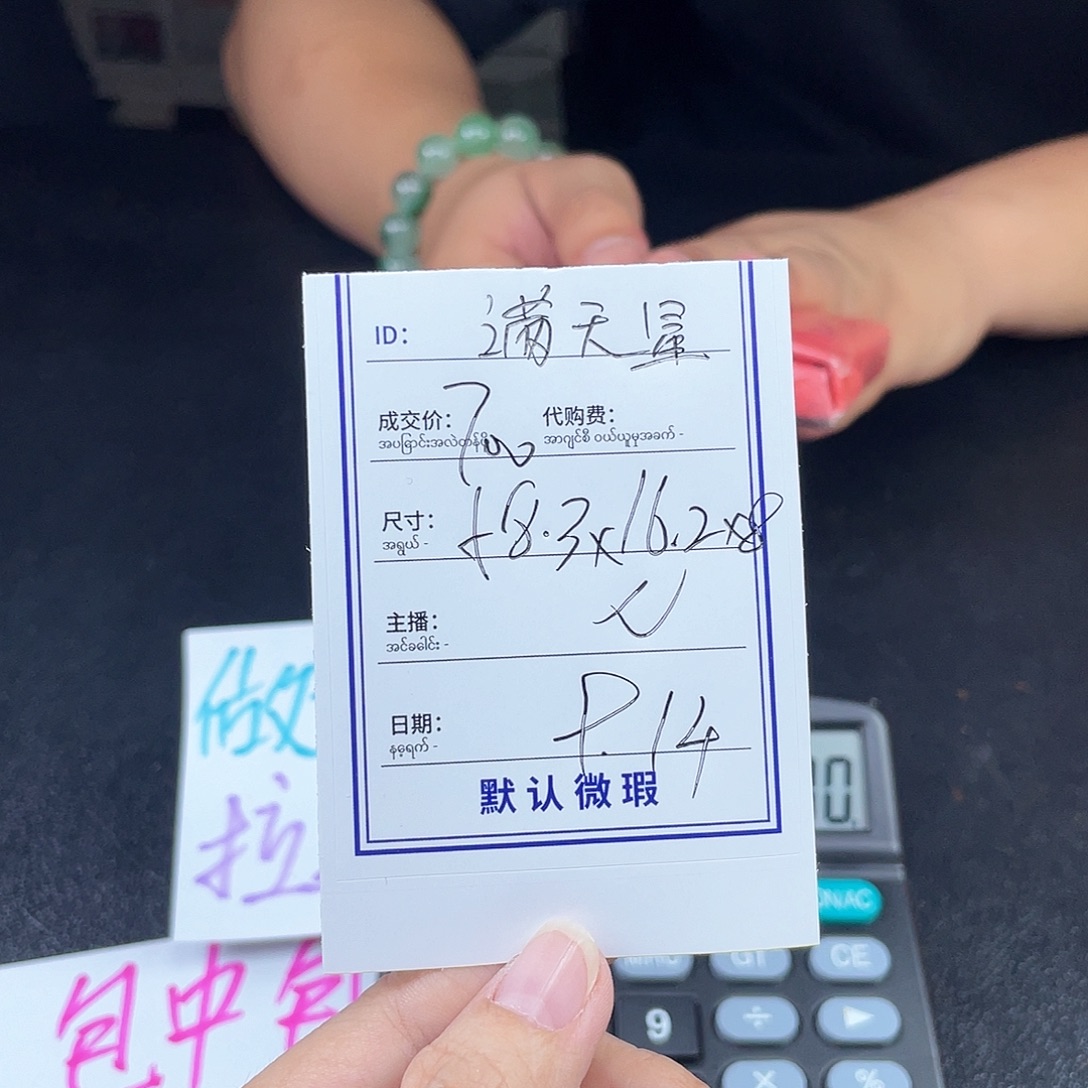 ID: 满天星
成交价: 700 代购费:
အပြောင်းအလဲတန်ဖိုး အာဂျင်စီ ဝယ်ယူမှုအခက် -
尺寸: 18.3x16.2x8
အရွယ် -
主播:
အင်ခေါင်း -
日期: 7.14
နေ့ရက် -
默认微瑕
做
拉
包中包
ON/AC
GT
CE
9
÷
×
%